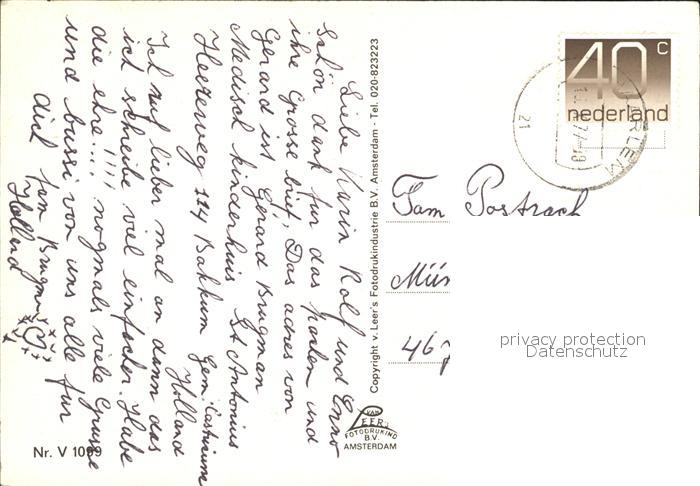 Liebe Karin Rolf und Enno
Schön dank fur das Karten und
ihre Grosse brief, Das adres von
Gerard ist Gerard Brugman
Medisch kinderhuis St Antonius
Heereweg 224 Bakkum Gem. Castricum
Holland
Ich ruf lieber mal an dann das
ich schreibe viel einfacher. Habe
die ehre.... !!!! nogmals viele Grusse
und bussi von uns alle fur
dich fam Brugman
Holland
Copyright v. Leer's Fotodrukindustrie B.V. Amsterdam - Tel. 020-823223
Nr. V 1099
VAN
LEER'S
FOTODRUKIND
B.V.
AMSTERDAM
40 c
nederland
HAARLEM
21
Fam Postrach
Mün
46
privacy protection
Datenschutz